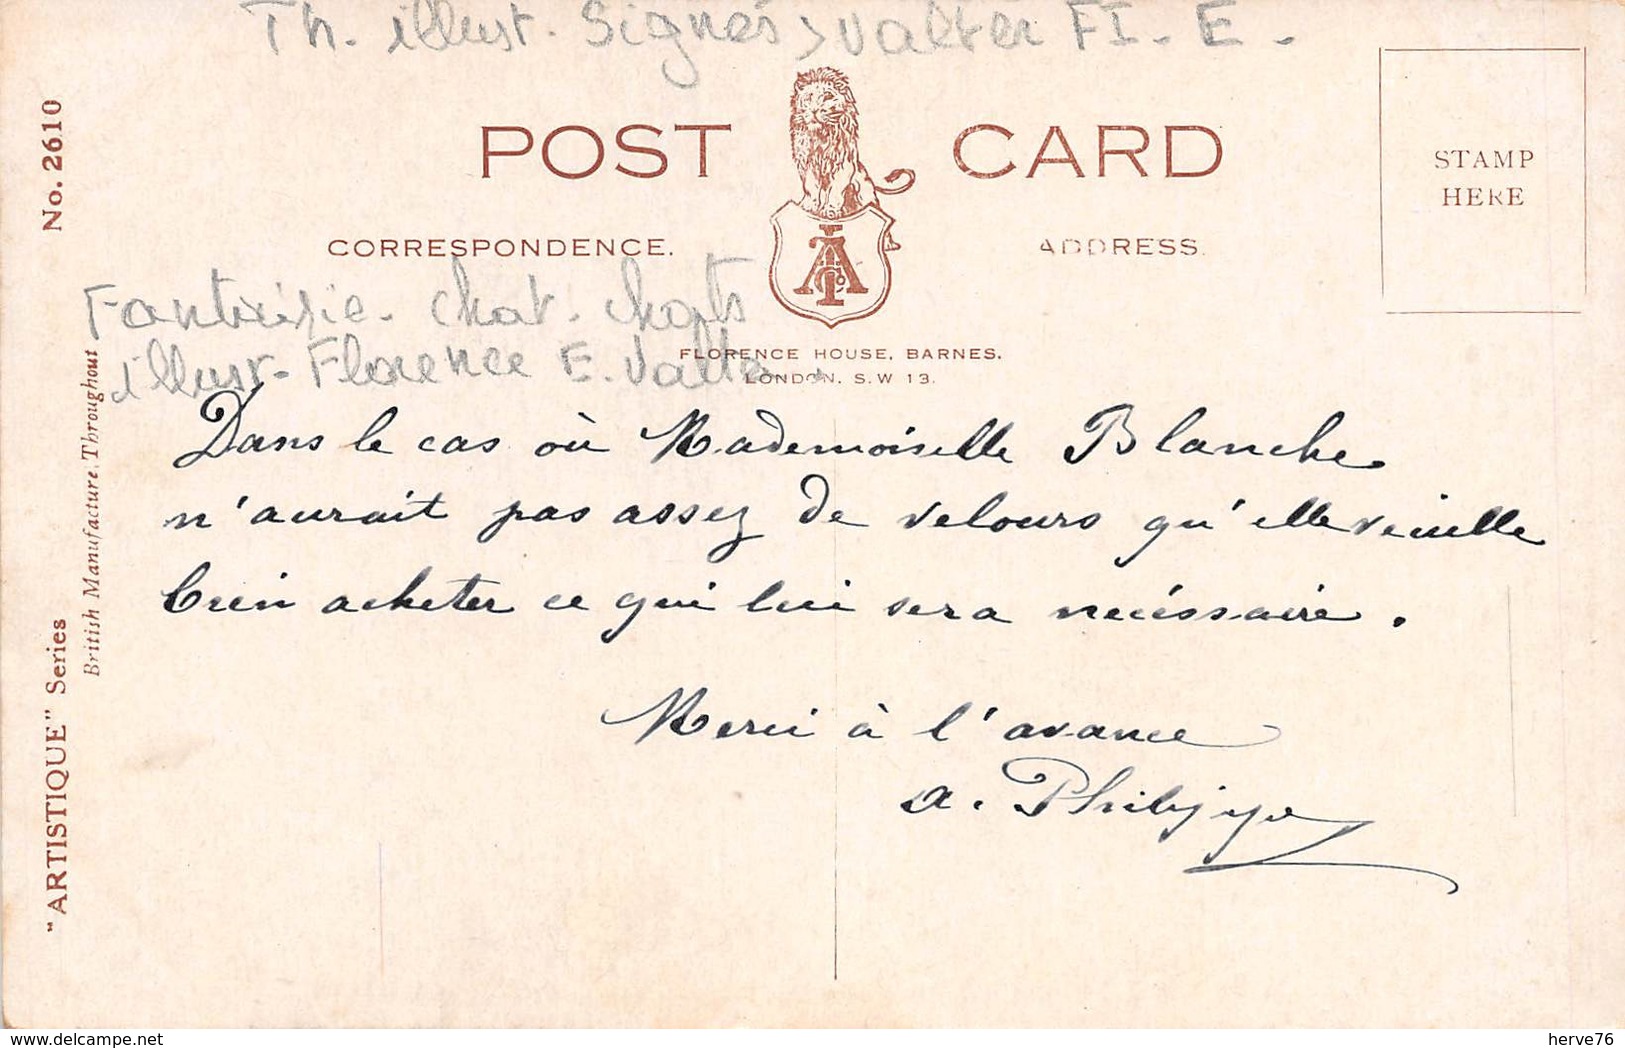 Th. illust. Signés > Valter Fl. E.
POST CARD
STAMP
HERE
CORRESPONDENCE. ADDRESS.
IA Co
Fantaisie - chat - chats
illust - Florence E. Valter
FLORENCE HOUSE, BARNES.
LONDON. S.W 13.
Dans le cas où Mademoiselle Blanche
n'aurait pas assez de velours qu'elle veuille
bien acheter ce qui lui sera nécéssaire.
Merci à l'avance
a. Philippe
No. 2610
"ARTISTIQUE" Series
British Manufacture Throughout
delcampe.net
herve76